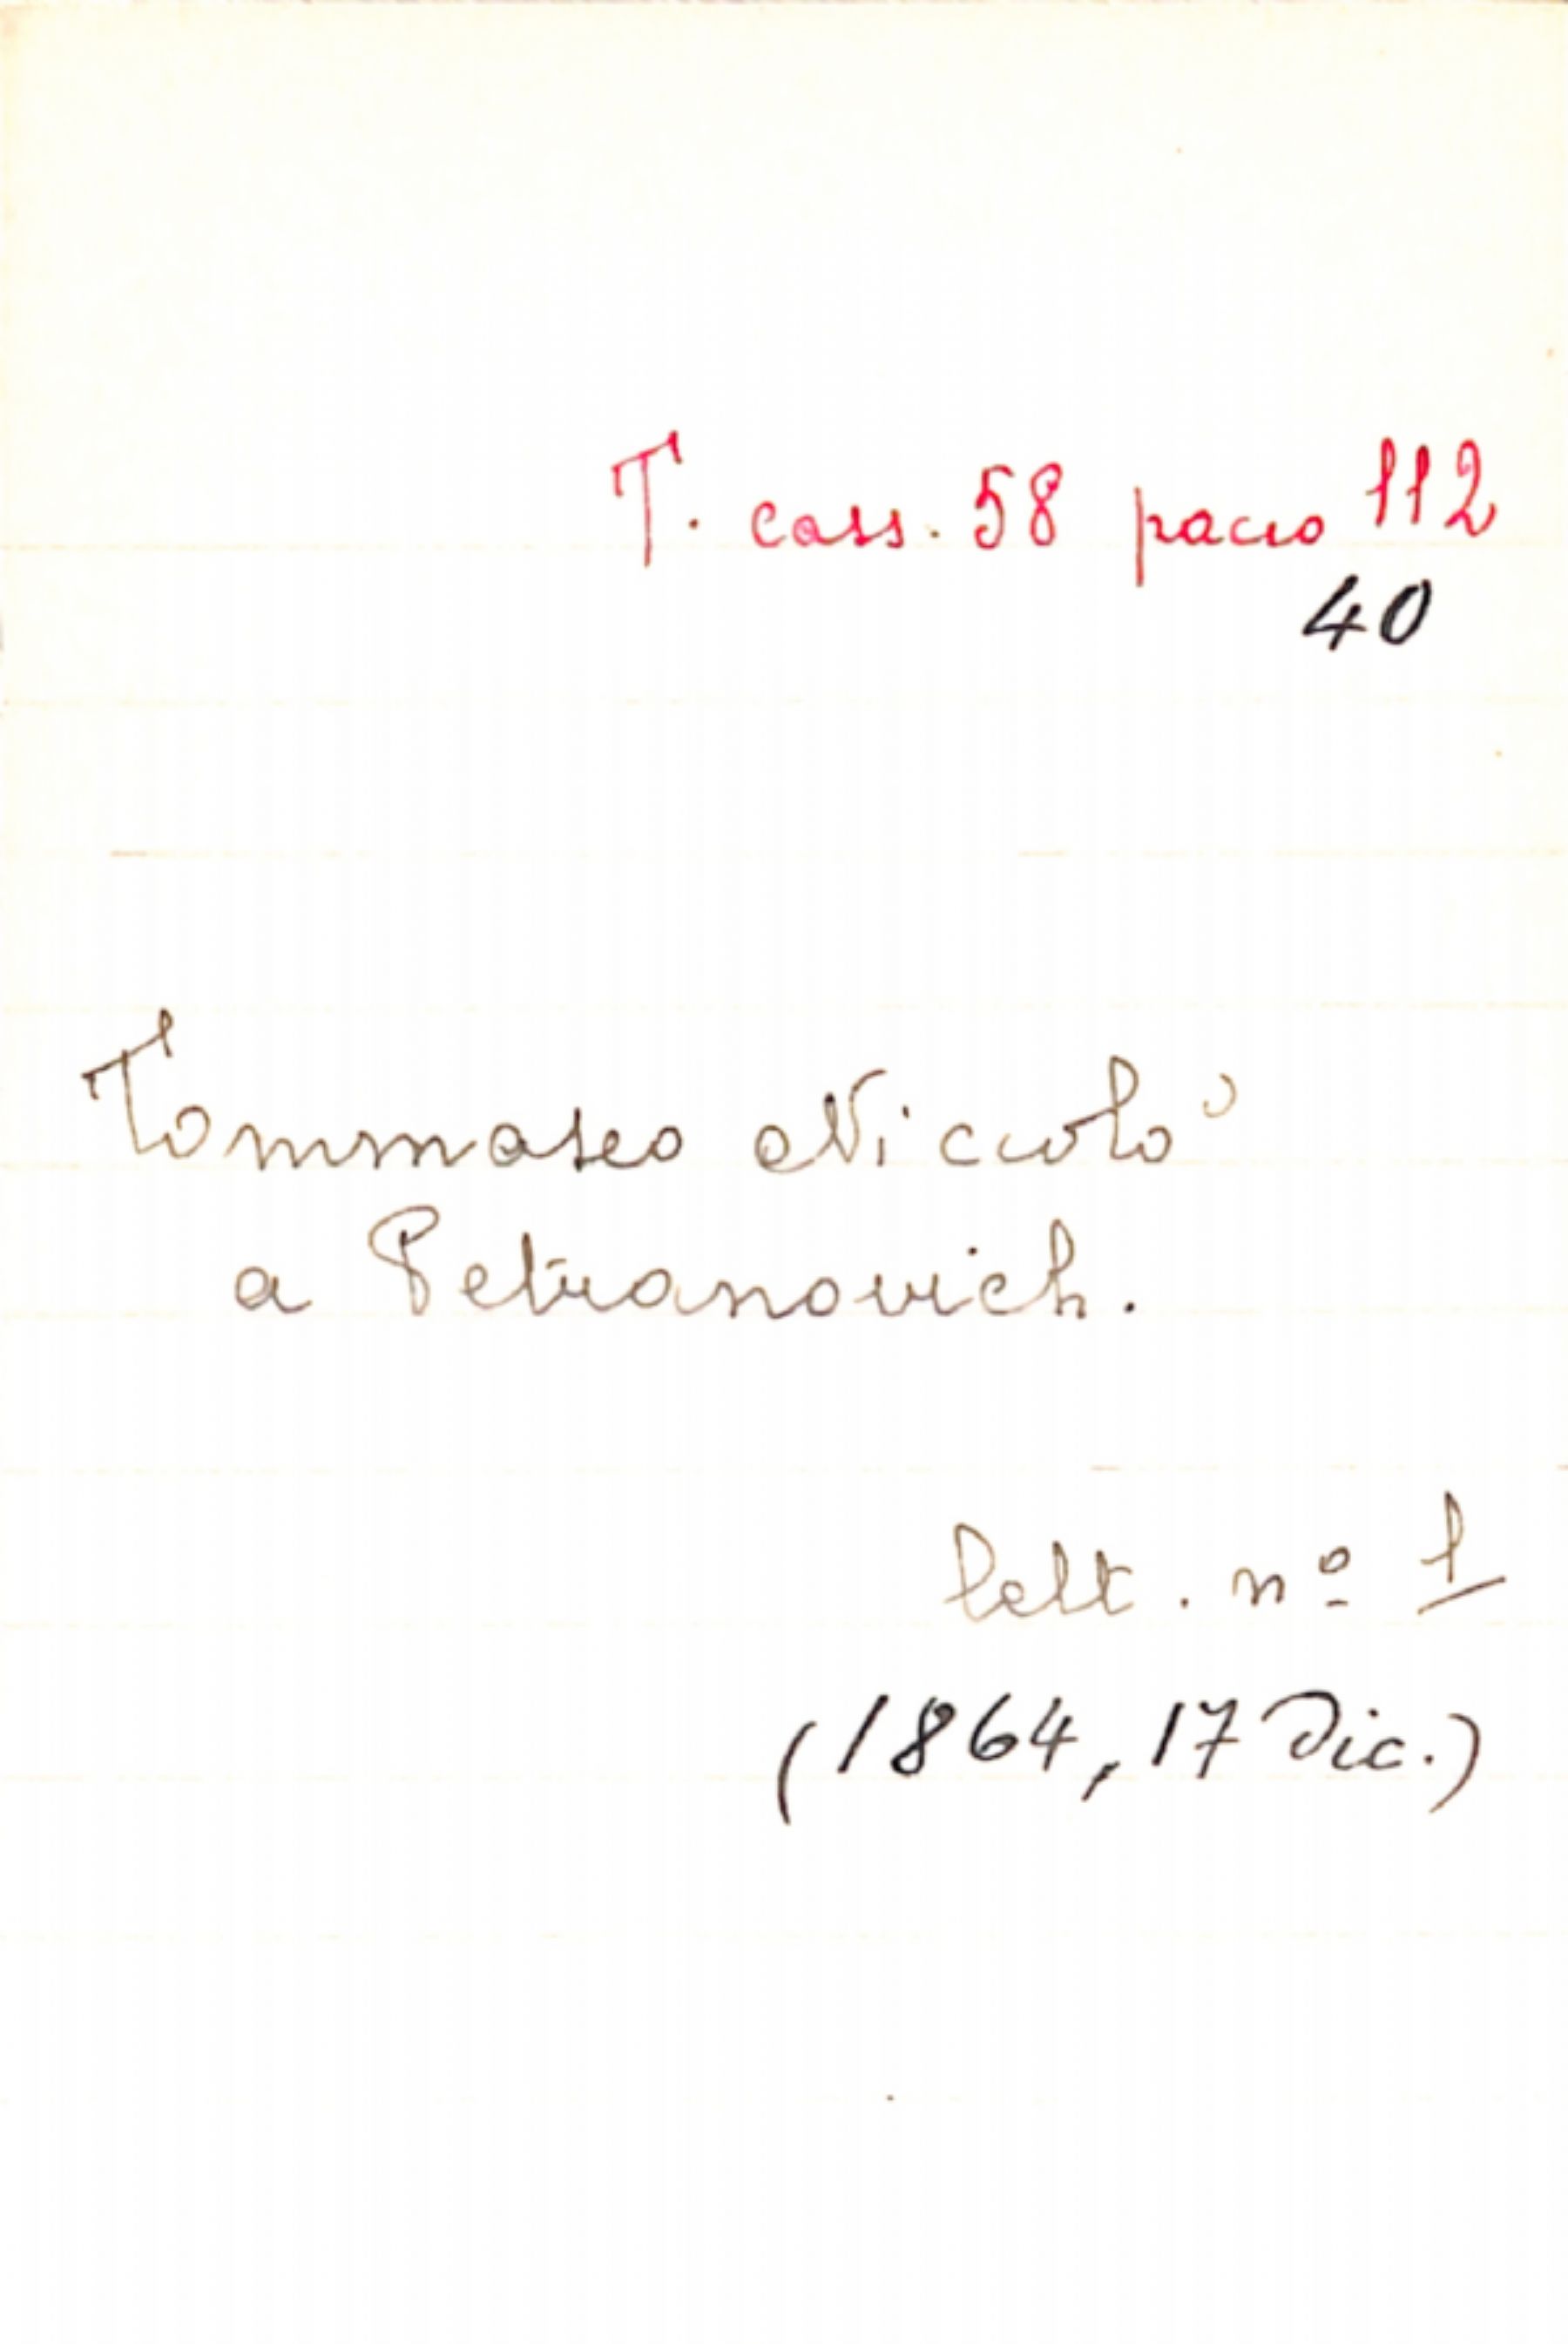 T. cass. 58 pacco 112
40
Tommaseo Niccolò
a Petranovich.
lett. nº 1
(1864, 17 Dic.)